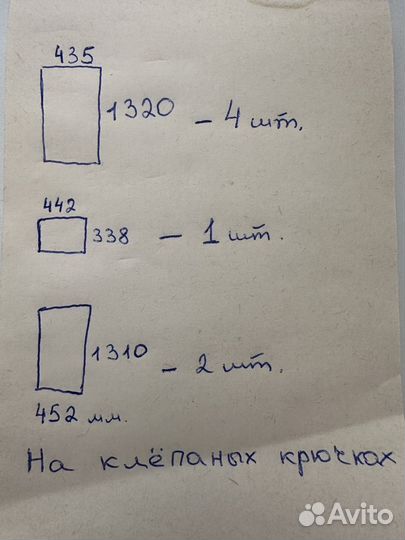 435
1320 - 4 шт.
442
338 - 1 шт.
1310 - 2 шт.
452 мм.
На клёпаных крючках
Avito